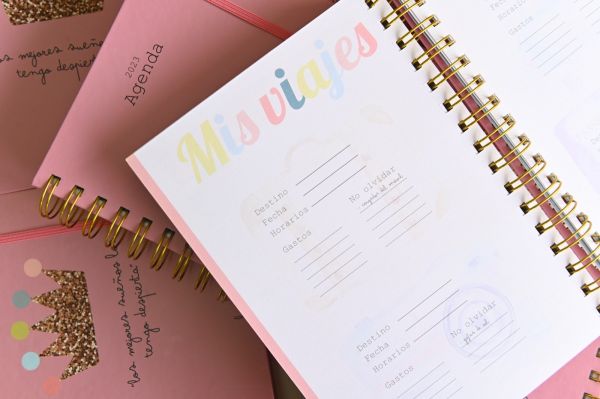 los mejores sueños
tengo despierta
2023
Agenda
Mis viajes
Destino
Fecha
Horarios
Gastos
No olvidar
Destino
Fecha
Horarios
Gastos
No olvidar
los mejores sueños l
tengo despierta